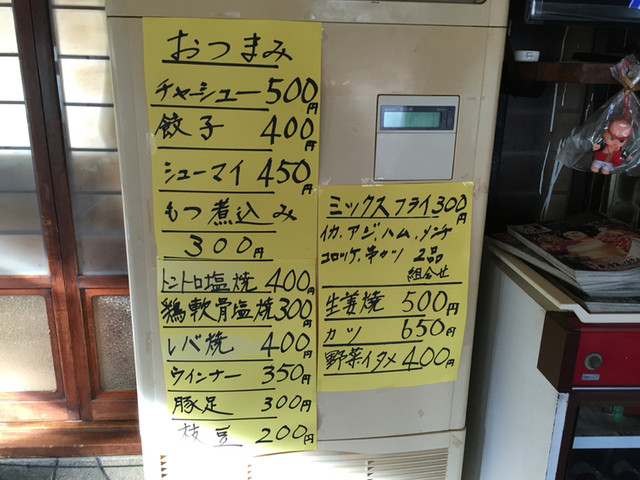 おつまみ
チャーシュー 500円
餃子 400円
シューマイ 450円
もつ煮込み
300円
トントロ塩焼 400円
鶏軟骨塩焼 300円
レバ焼 400円
ウインナー 350円
豚足 300円
枝豆 200円
ミックスフライ 300円
イカ、アジ、ハム、メンチ
コロッケ、串カツ 2品
組合せ
生姜焼 500円
カツ 650円
野菜イタメ 400円